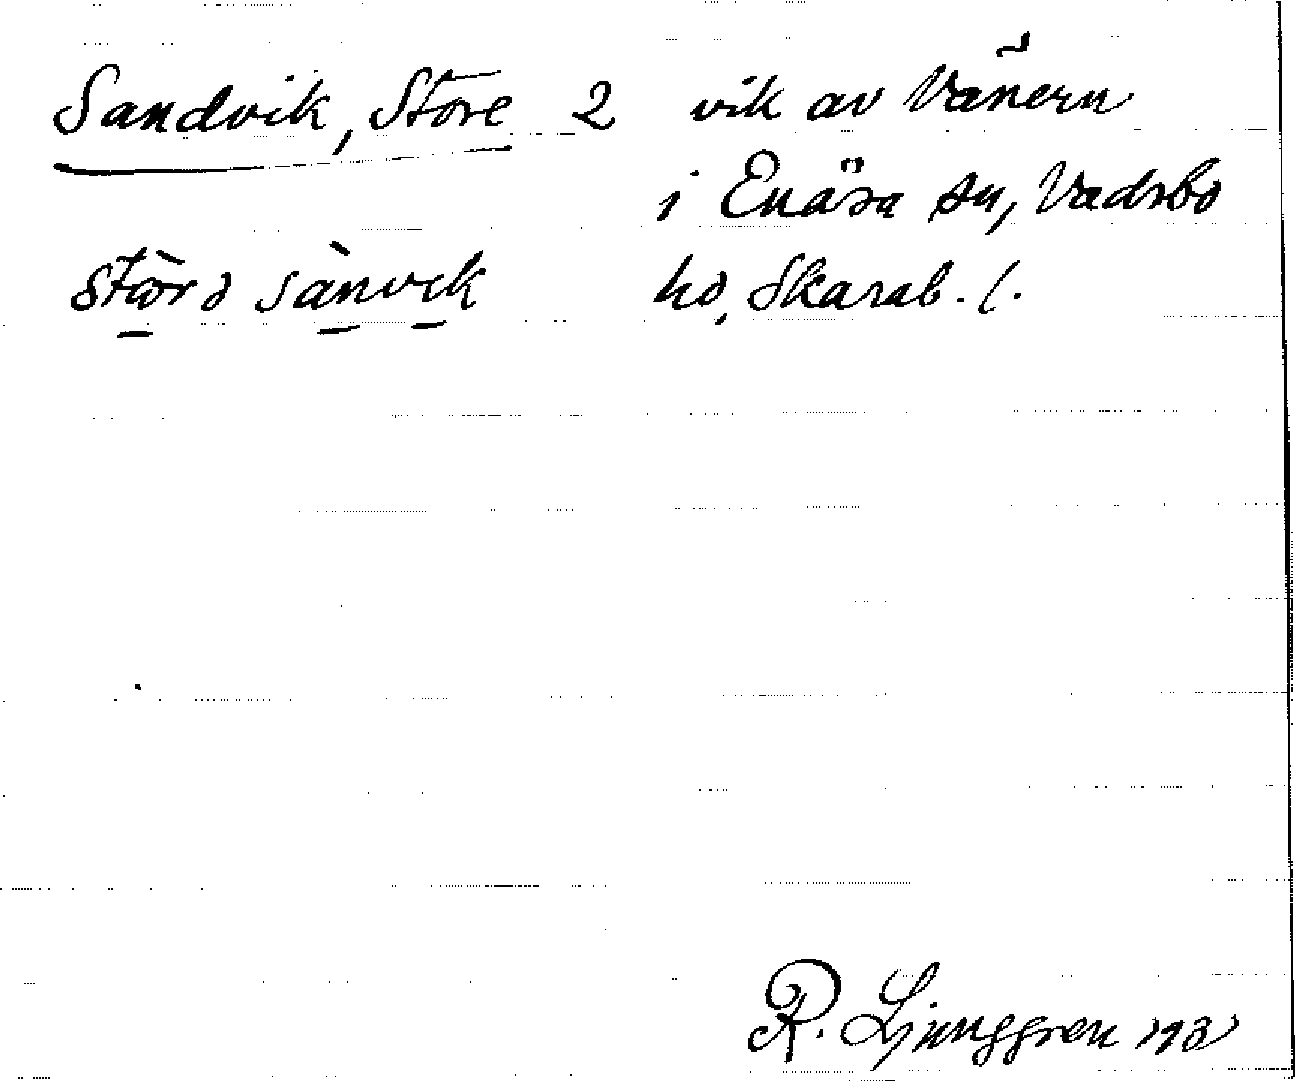 Sandvik, Store 2 vik av Vänern
i Enåsa sn, Vadsbo
stòrə sànvik hd, Skarab. l.
R. Ljunggren 193